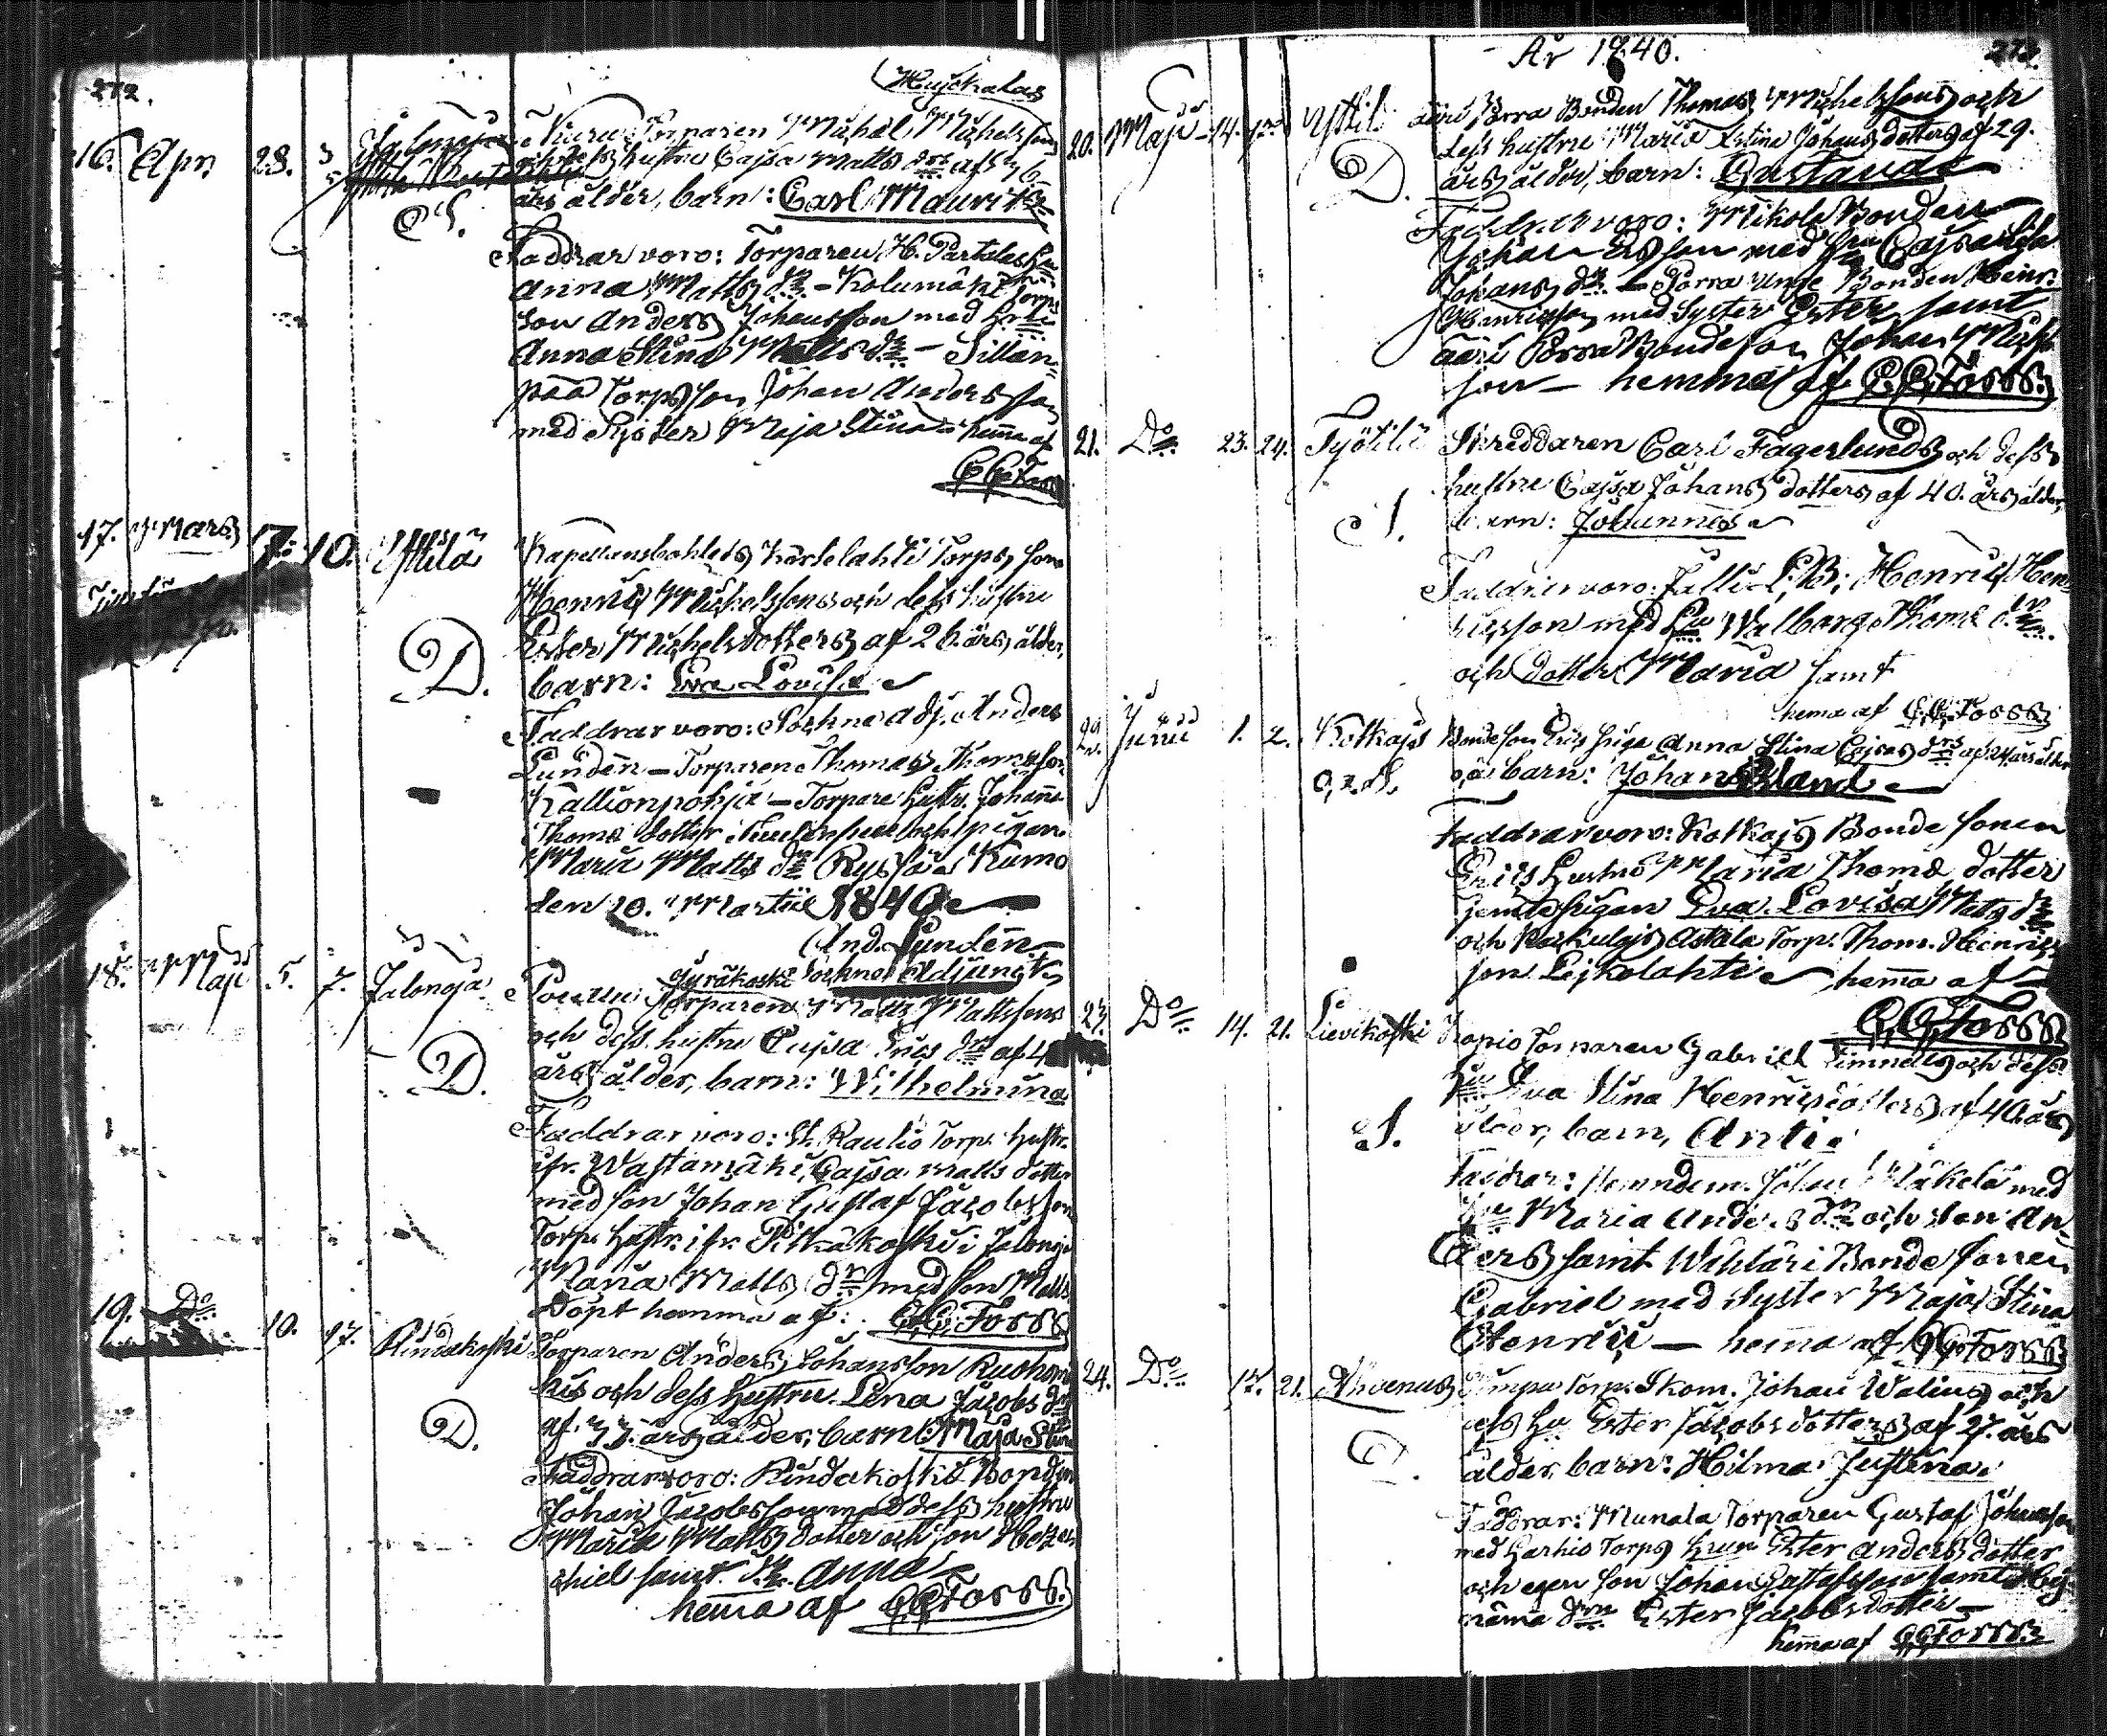 272.
Huickalas
16. Apr. 28. 3 Jalonoja Kiuru Torparen Michel Michelssons
och dess hustru Cajsa Matts drs af
års ålder, barn: Carl Mauritz
S.
Faddrar voro: Torparen H. Partalesson
Anna Matts dr. – Kolumäki Torp
son Anders Johansson med hru
Anna Stina Matts dr. – Sillan=
pää Torp. son Johan Andersson
med Syster Maja Stina – hema af
C G Forss
17. Mars 7. 10. Yttilä Kapellansbohlets Torps son
Henric Michelssons och dess hustru
Ester Michelsdotters af 26 års ålder,
D. barn: Eva Lovisa
Faddrar voro: Sockne adj. Anders
Lundén – Torparen Thomas Thomasson
Kallionpohja – Torpare hustr. Johanna
Thomæ dotter i och pigan
Maria Matts dr Ryssjö. Kumo
den 10. Martii 1840
And. Lundén
Sockne Adjunct
18. Maji 5. 7. Jalonoja Jyräkoski
Torparen Matts Mattssons
och dess hustru Cajsa Erics drs af 4
D. års ålder, barn: Wilhelmina
Faddrar voro: St. Raulio Torp. hustr.
ifr. Wastamäki, Cajsa Matts dotter
med son Johan Gustaf Jacobsson
Torp. hustr. ifr. Pitkäkoski i Jalonoja
Maria Matts dr med son Matts.
Döpt hemma af: C G Forss
19. Do 10. 17. Rindakoski Torparen Anders Johansson Ruohomä
kis och dess hustru Lena Jacobs drs
D. af 33. års ålder, barn: Maja Stina
Faddrar voro: Rindakoski Bonden
Johan Jacobsson med dess hustru
Maria Matts dotter och son Heze=
chiel samt dr. Anna
hema af C G Forss.
År 1840. 273.
20. Maji 14. Yttilä Äari Porra Bonden Thomas Michelssons och
dess hustrus Maria Stina Johans dotters af 29.
D. års ålder, barn: Gustava
Faddrar voro: Mikola Bonden
Johan Ersson med hru Cajsa Lisa
Johans dr – Porra unge Bonden Henr.
Henricsson med Syster Ester samt
Äari Porra Bondeson Johan Michels
son – hemma af C G Forss
21. Do 23. 24. Työtilä Skreddaren Carl Fagerlunds och dess
hustru Cajsa Johans dotters af 40. års ålder,
S. barn: Johannes
Faddrar voro: Jalli L. B: Henric Hen=
ricsson med hu Walborg Thomæ dr.
och dotter Maria samt
hema af C. G. Forss
22. Junii 1. 2. Kotkajs Bondeson Erics piga Anna Stina Cajsas drs af 24 års ålder
o, ä. S. oä. barn: Johan Erland
Faddrar voro: Kotkajs Bonde sonen
Erics hustru Maria Thomæ dotter
jemte pigan Eva Lovisa Matts dr
och Astala Torp. Thom. Henrics
son Lejkolahti – hema af
C G Forss
23. Do 14. 21. Lievikoski Torparen Gabriel Limnells och dess
hu Eva Stina Henricsdotters af 40. års
S. ålder, barn, Anti.
Faddrar: Nemndem. Johan Mäkelä med
hu Maria Anders dr och son An=
ders samt Wihtari Bonde sonen
Gabriel med Syster Maja Stina
Henric – hema af C G Forss
24. Do 17. 21. Torp. Skom. Johan Walins och
dess hu Ester Jacobsdotters af 27. års
D. ålder barn: Hilma Justina.
Faddrar: Munala Torparen Gustaf Johansson
med Harhio Torps hrun Ester Anders dotter
och egen son Johan Gustafsson samt
Ester Jacobsdotter –
hema af C G Forss